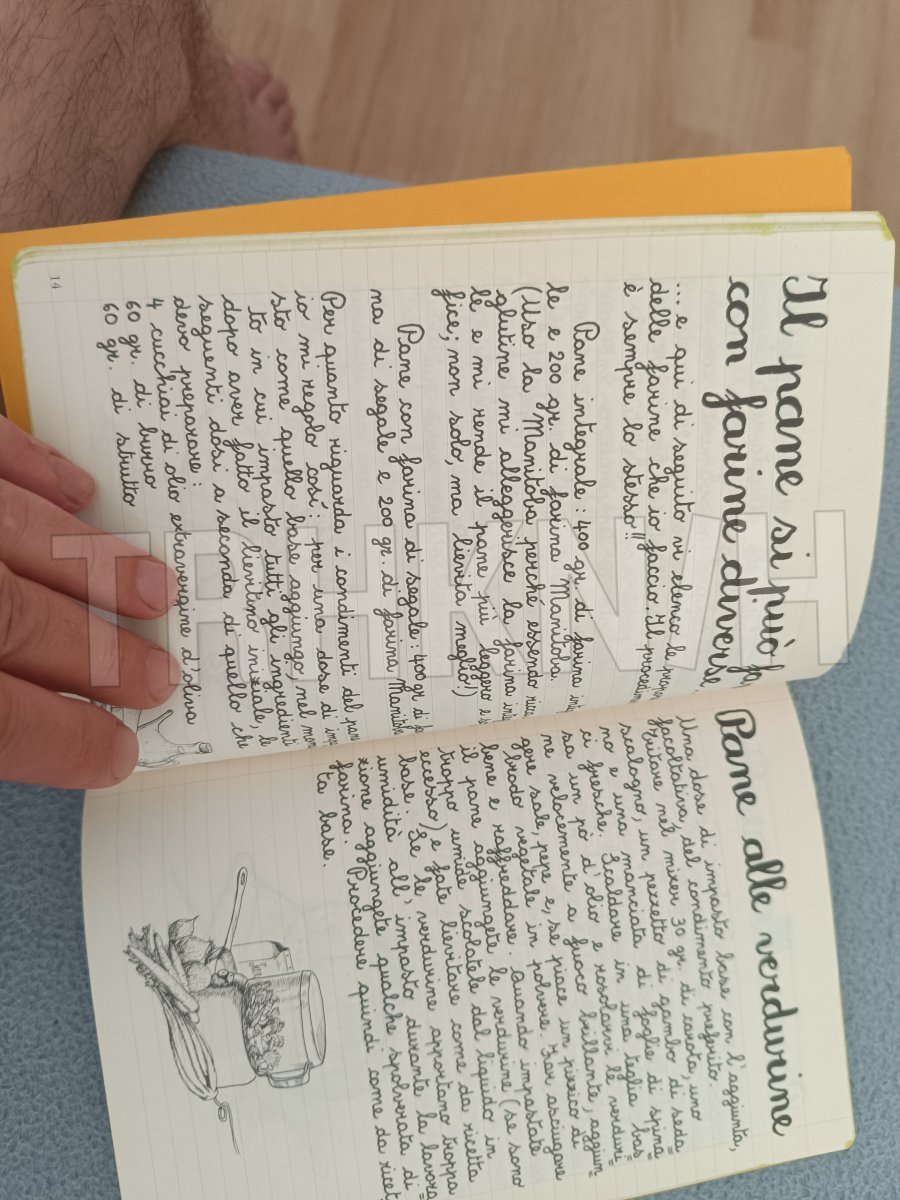 Il pane si può fa
con farine diverse
... e qui di seguito vi elenco le propor
delle farine che io faccio. Il procedim
è sempre lo stesso!!
Pane integrale: 400 gr. di farina inte
le e 200 gr. di farina Manitoba.
(Uso la Manitoba perché essendo ricc
glutine mi alleggerisce la farina inte
le e mi rende il pane più leggero e s
fice; non solo, ma lievita meglio!)
Pane con farina di segale: 400 gr di fa
na di segale e 200 gr. di farina Manitoba
Per quanto riguarda i condimenti del pan
io mi regolo così: per una dose di imp
sto come quello base aggiungo, nel mom
to in cui impasto tutti gli ingredienti
dopo aver fatto il lievitino iniziale, le
seguenti dosi a seconda di quello che
devo preparare:
4 cucchiai di olio extravergine d'oliva
60 gr. di burro
60 gr. di strutto
14
Pane alle verdurine
Una dose di impasto base con l'aggiunta,
facoltativa, del condimento preferito.
Tritare nel mixer 30 gr. di carota, uno
scalogno, un pezzetto di gambo di seda
no e una manciata di foglie di spina
ci fresche. Scaldare in una teglia bas
sa un pò d'olio e rosolarvi le verduri
ne velocemente a fuoco brillante, aggiun
gere sale, pepe e, se piace un pizzico di
brodo vegetale in polvere. Far asciugare
bene e raffreddare. Quando impastate
il pane aggiungete le verdurine (se sono
troppo umide scolatele dal liquido in
eccesso) e fate lievitare come da ricetta
base. Se le verdurine apportano troppa
umidità all'impasto durante la lavora
zione aggiungete qualche spolverata di
farina. Procedere quindi come da ricet
ta base.
TAHKWH